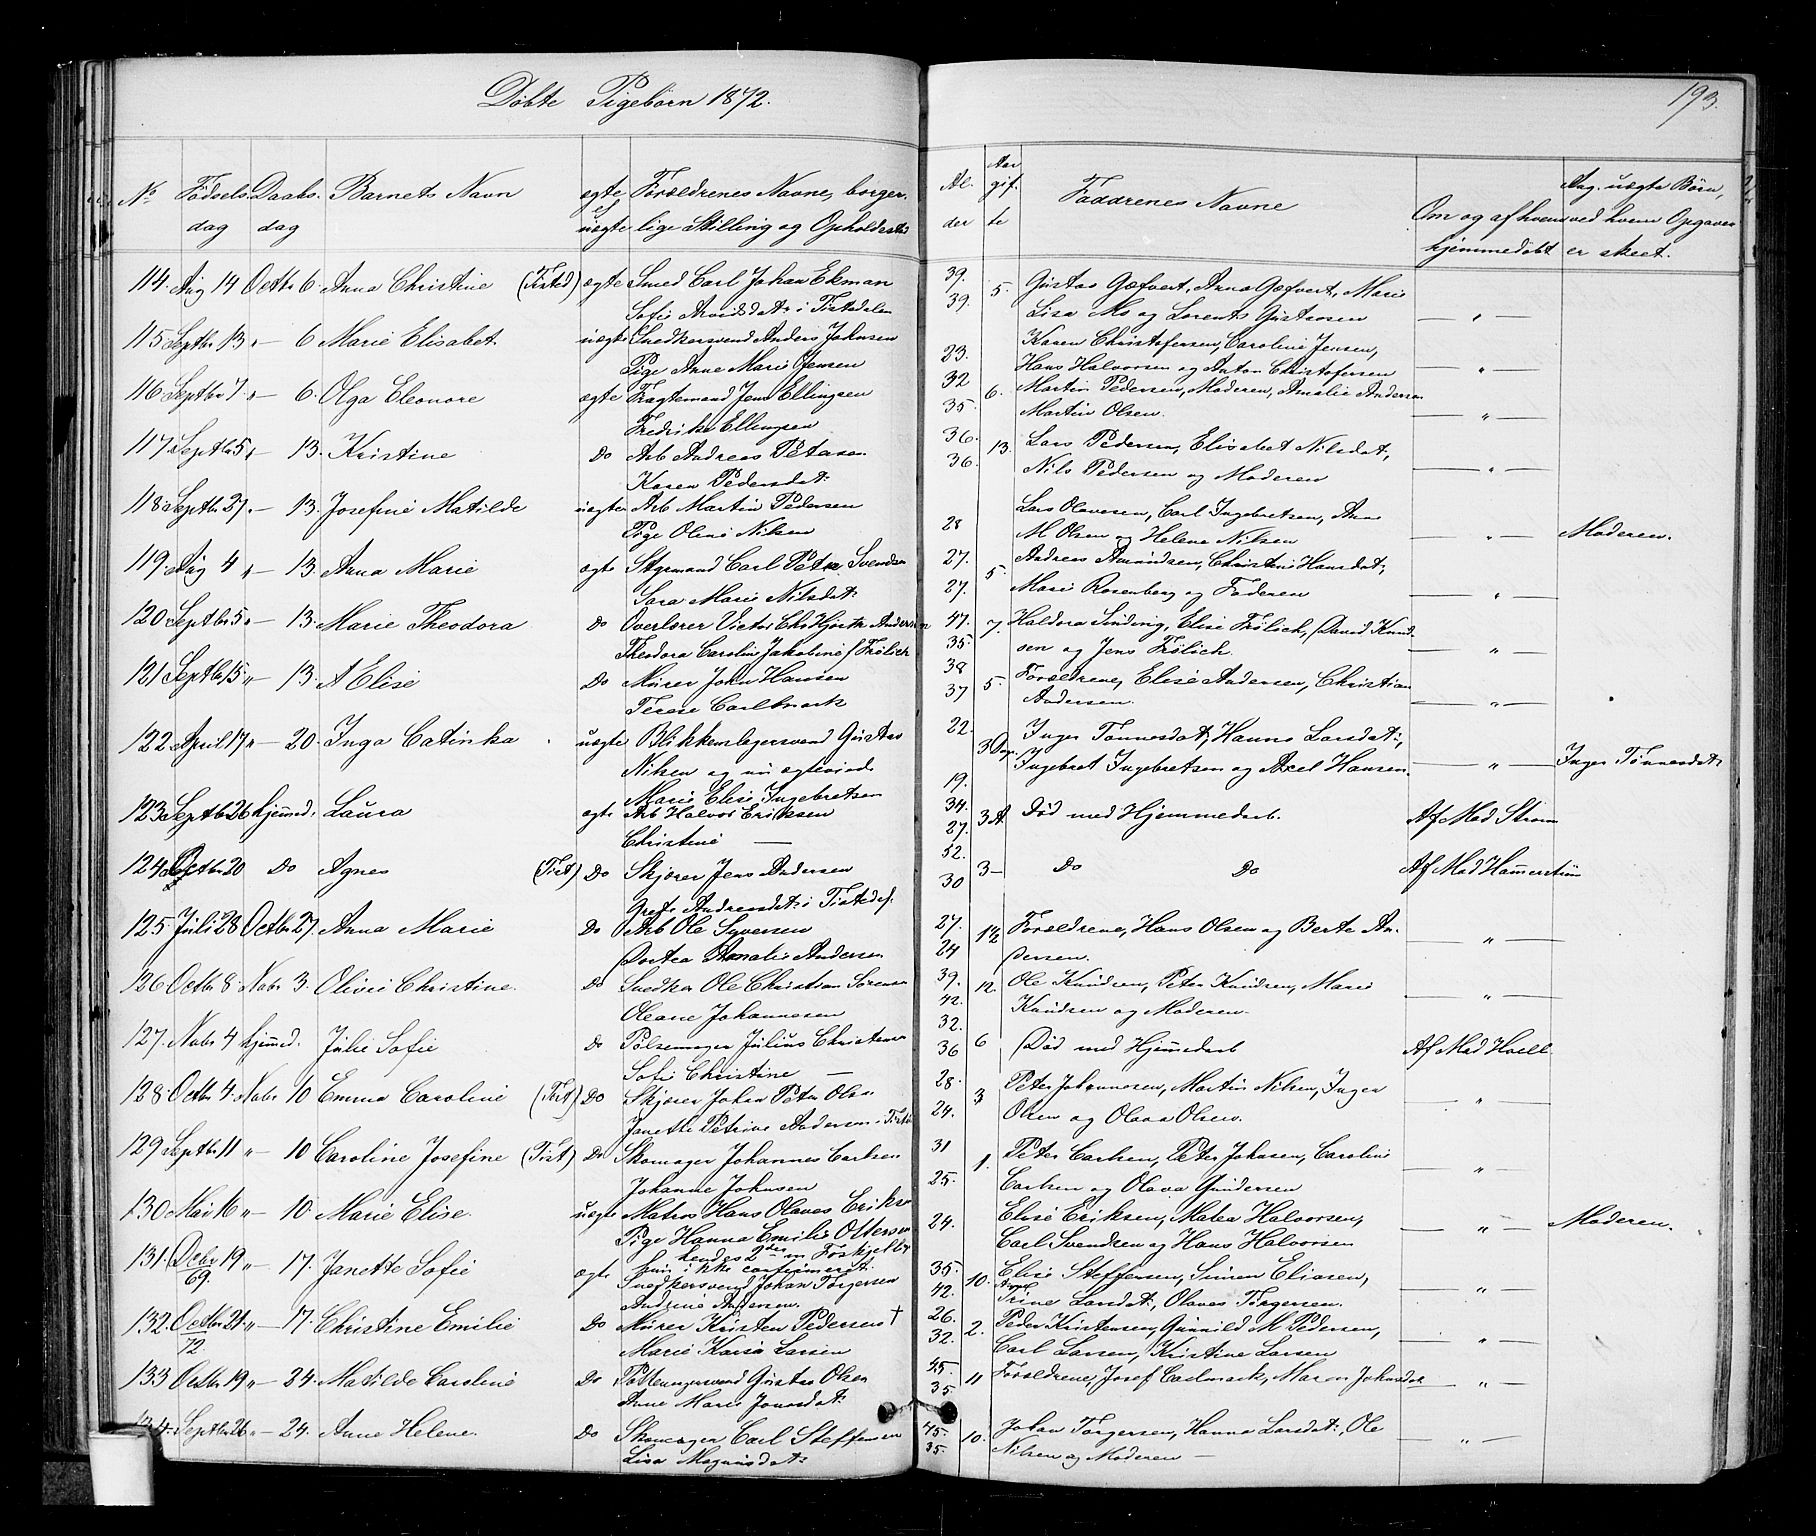 Døbte Pigebørn 1872.
193.
No Fødsels dag Daabs dag Barnets Navn ægte el uægte Forældrenes Navne, borgerlige Stilling og Opholdssted Al. der Aargif. te Faddrenes Navne Om og af hvem hjemmedøbt Ang. uægte Børn, ved hvem Opgaven er skeet.
114. Aug 14 Octbr 6. Anna Christine (Tisted) ægte Smed Carl Johan Ekman 39. 5. Gustav Gæfvert, Anna Gæfvert, Marie
Sofie Arvidsdat: i Tistedalen 39. Lisa Ms og Lorents Gustavsen — „ —
115 Septbr 13 „ — 6 Marie Elisabet. uægte Snedkersvend Anders Johnsen Karen Christofersen, Caroline Jensen,
Pige Anne Marie Jensen 23. Hans Halvorsen og Anton Christofersen — „ —
116 Septbr 7 „ — 6. Olga Eleonore ægte Fragtemand Jens Ellingsen 32 6. Martin Pedersen, Moderen, Amalie Andersen
Fredrikke Ellingsen 35. Martin Olsen. — „ —
117 Septbr 5 „ — 13. Kristine Do Arb Andreas Petersen 36. 13. Lars Pedersen, Elisabet Nilsdat,
Karen Pedersdat: 36. Nils Pedersen og Moderen — „ —
118 Septbr 27 „ — 13. Josefine Matilde uægte Arb Martin Pedersen Lars Olavesen, Carl Ingebretsen, Ane
Pige Oline Nilsen 28 M Olsen og Helene Nilsen — „ — Moderen.
119. Aug 4 „ — 13. Anna Marie ægte Styrmand Carl Peter Svendsen 27. 5. Andreas Amundsen, Christine Hansdat;
Sara Marie Nilsdat: 27. Marie Rosenberg og Faderen — „ —
120 Septbr 5 „ — 13. Marie Theodora Do Overlærer Victor Chr Hjorth Andersen 47. 7. Haldora Sinding, Elise Frølich, David Knud-
Theodora Caroline Jakobine f Frølich 35. sen og Jens Frølich. — „ —
121 Septbr 15 „ — 13. A Elise Do Murer John Hansen 38 5. Forældrene, Elise Andersen, Christian
Terese Carlmark 37 Andersen. — „ —
122 April 17 „ — 20. Inga Catinka uægte Blikkenslagersvend Gustav 22. 3 Dage. Inger Tønnesdat, Hanna Larsdat:,
Nilsen og nu ægteviede Ingebret Ingebretsen og Axel Hansen. — „ — Inger Tønnesdat:
Marie Elise Ingebretsen 19.
123 Septbr 26 hjemmed. Laura ægte Arb Halvor Eriksen 34. 3 A Død med Hjemmedaab. Af Mad Strøm
Christine — 27.
124 Octbr 20 Do Agnes (Tist) Do Skjærer Jens Andersen 52. 3 — Do Do Af Mad Hamerstrøm
Grete Andreasdat: i Tistedal. 30
125 Juli 28 Octbr 27. Anna Marie Do Arb Ole Syversen 27. 1½ Forældrene, Hans Olsen og Berte An-
Dortea Amalie Andersen 24 dersen. — „ —
126 Octbr 8. Novbr 3. Olise Christine. Do Snedker Ole Christian Sørensen 39. 12. Ole Knudsen, Peter Knudsen, Marie
Oleane Johannesen 42. Knudsen og Moderen. — „ —
127. Novbr 4 hjemmed. Julie Sofie Do Pølsemager Julius Christensen 32. 6 Død med Hjemmedaab Af Mad Hvell
Sofie Christine — 36
128. Octbr 4. Novbr 10 Emma Caroline (Tist) Do Skjærer Johan Peter Olsen 28. 3 Peter Johannesen, Martin Nilsen, Inger
Janette Petrine Andersen i Tist: 24. Olsen og Olava Olsen. — „ —
129 Septbr 11 „ — 10 Caroline Josefine (Tist) Do Skomager Johannes Carlsen 31 1. Peter Carlsen, Peter Johnsen, Caroline
Johanne Johnsen 25. Carlsen og Olava Gundersen — „ —
130 Mai 16 „ — 10. Marie Elise. uægte Matros Hans Olaves Eriksen Elise Eriksen, Matea Halvorsen,
Pige Hanna Emilie Ottersen 24. Carl Svendsen og Hans Halvorsen — „ — Moderen.
hendes 2det m Forskjellig
hun i ikke confirmeret.
131. Decbr 19 „ — 17. Janette Sofie ægte Snedkersvend Johan Torgersen 35. 10. Elise Steffensen, Simen Eliasen,
69. Andrine Andersen. 42. Trine Larsdat:, Olaves Torgersen. — „ —
132. Octbr 21. „ — 17. Christine Emilie Do Murer Kristen Pedersen † 26. 2. Peder Kristensen, Gunnild M Pedersen,
72 Marie Kaisa Larsen 32. Carl Larsen, Kristine Larsen — „ —
133 Octbr 19 „ — 24. Matilde Caroline Do Pottemagersvend Gustav Olsen 45. 11 Forældrene, Josef Carlmark, Maren Johnsdat
Anne Marie Jonasdat: 35. — „ —
134. Septbr 26 „ — 24. Anne Helene. Do Skomager Carl Steffensen 45. 10. Johan Torgersen, Hanna Larsdat:, Ole
Lisa Magnusdat: 35. Nilsen og Moderen — — „ —